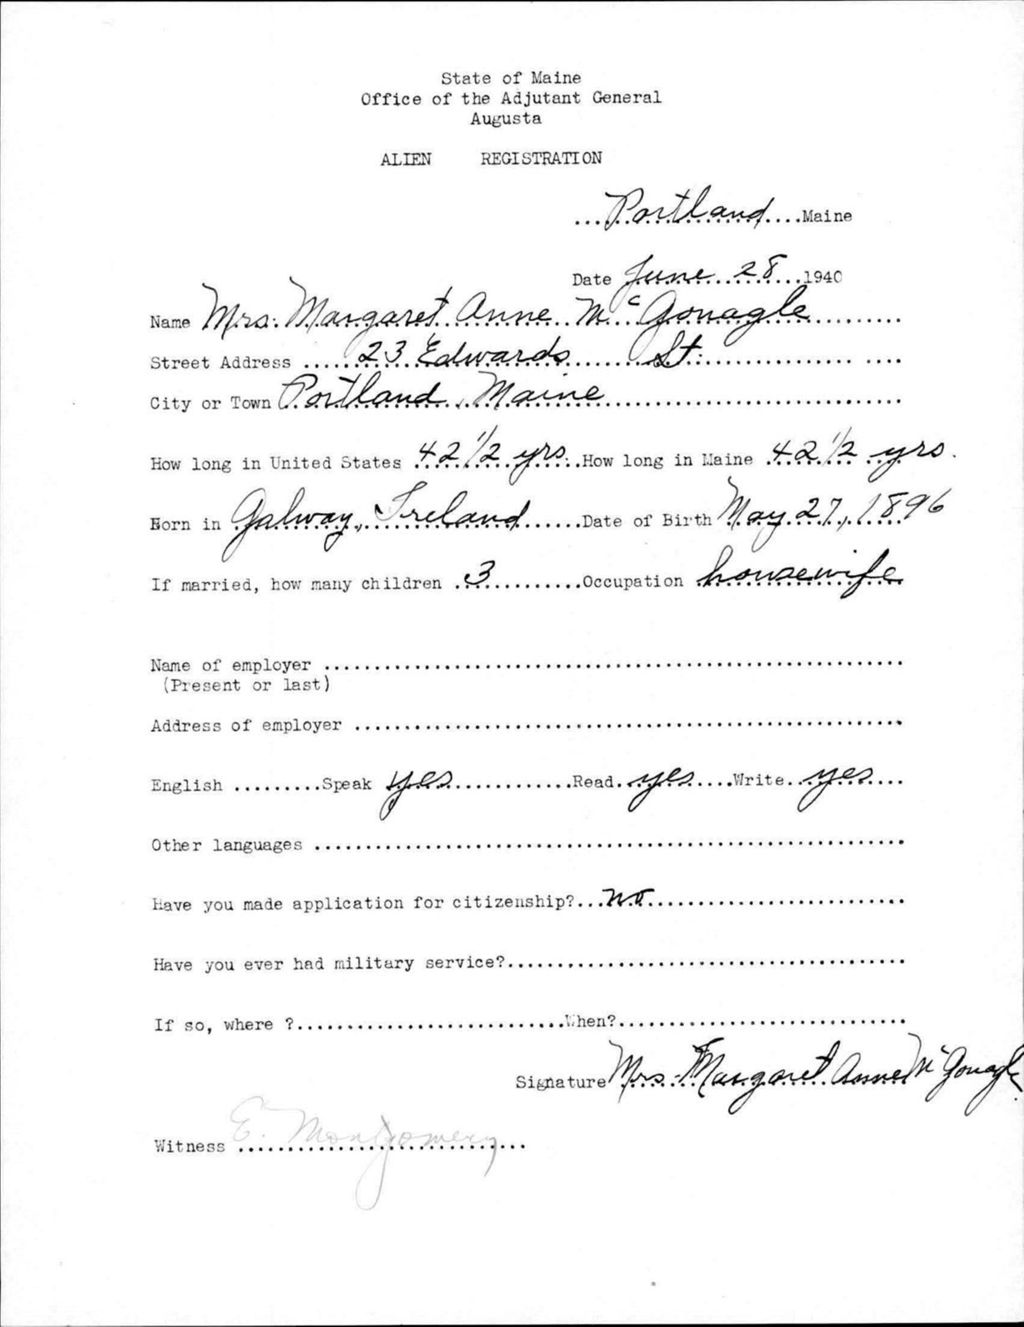 State of Maine
Office of the Adjutant General
Augusta
ALIEN REGISTRATION
...Portland....Maine
Date June 28 1940
Name Mrs. Margaret Anne McGonagle
Street Address 23 Edwards St.
City or Town Portland, Maine
How long in United States 42 1/2 yrs. How long in Maine 42 1/2 yrs.
Born in Galway, Ireland Date of Birth May 27, 1896
If married, how many children 3 Occupation housewife
Name of employer
(Present or last)
Address of employer
English Speak yes Read yes Write yes
Other languages
Have you made application for citizenship? no
Have you ever had military service?
If so, where ? When?
Signature Mrs. Margaret Anne McGonagle
Witness E. Montgomery